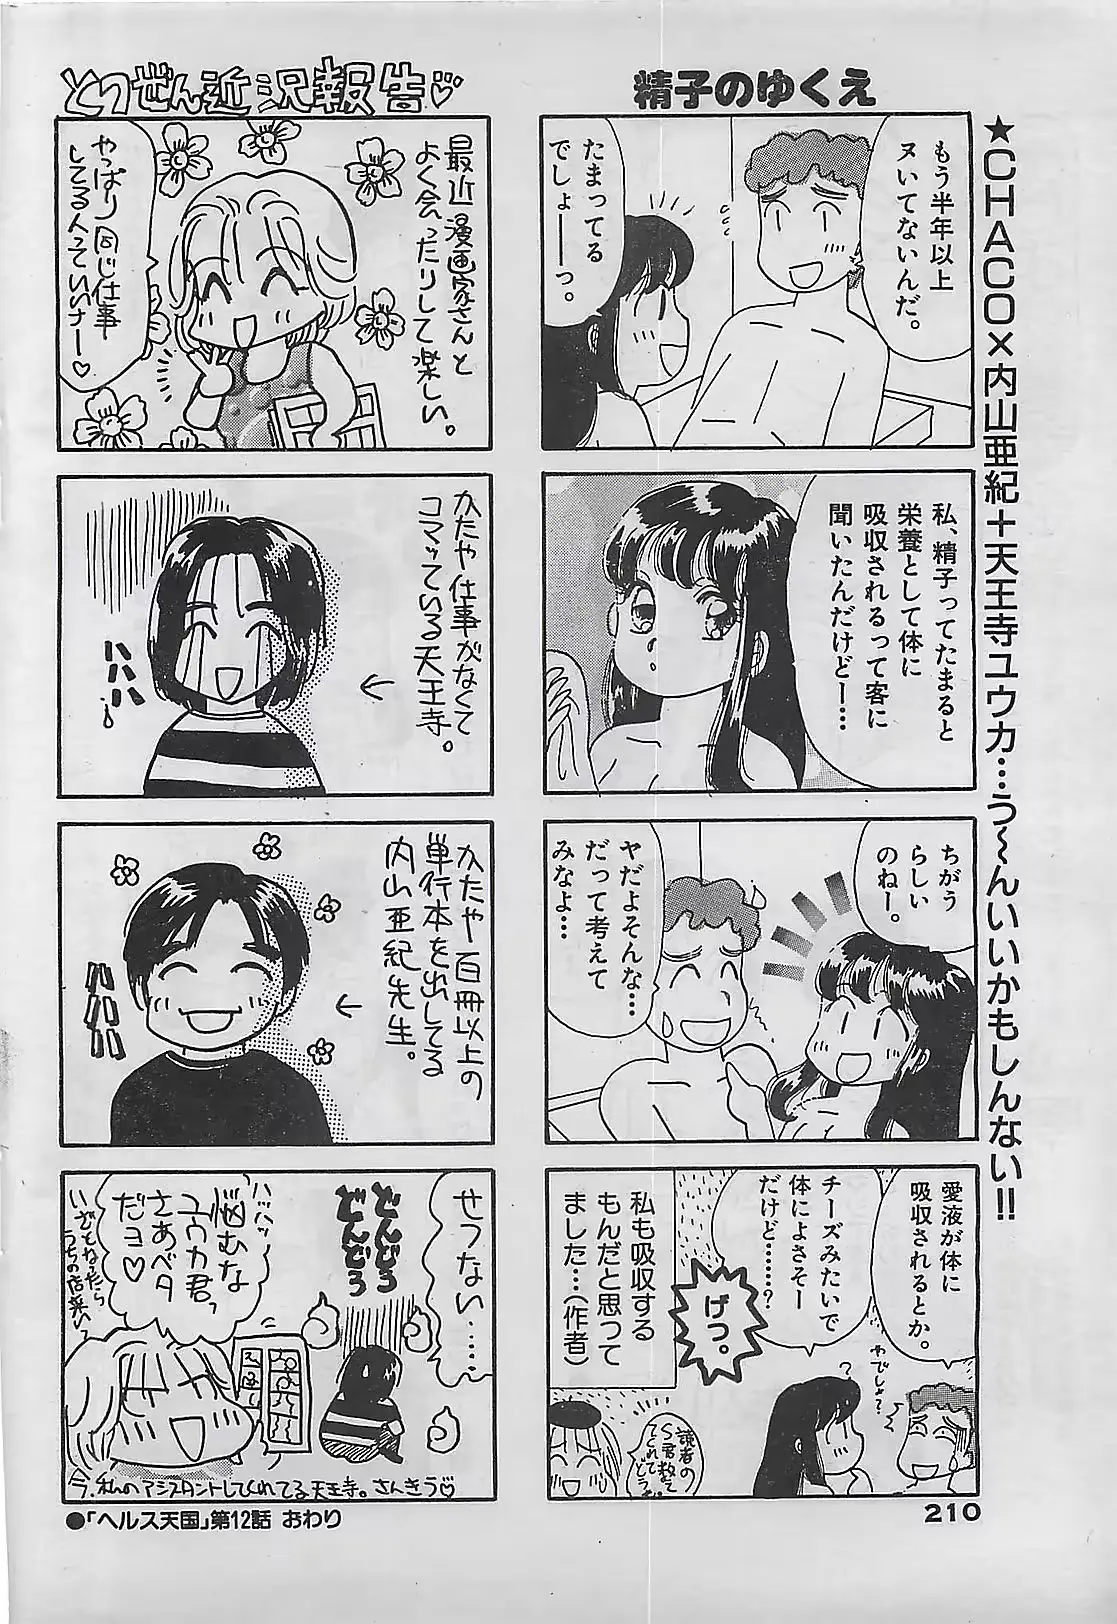 ★CHACO×内山亜紀＋天王寺ユウカ…う〜んいいかもしんない!!
精子のゆくえ
もう半年以上
ヌいてないんだ。
たまってる
でしょーーっ。
私、精子ってたまると
栄養として体に
吸収されるって客に
聞いたんだけどー…
ちがう
らしい
のねー。
ヤだよそんな…
だって考えて
みなよ…
愛液が体に
吸収されるとか。
チーズみたいで
体によさそー
だけど……?
やでしょ?
?
げっ。
私も吸収する
もんだと思って
ました…(作者)
読者の
S君教えて
くれて
どうも
210
とつぜん近況報告♡
最近漫画家さんと
よく会ったりして楽しい。
やっぱり同じ仕事
してる人っていいナー♡
かたや仕事がなくて
コマッている天王寺。
ハハハ
かたや百冊以上の
単行本を出してる
内山亜紀先生。
ハハハハ
せつない……
どんどろ
どんどろ
ハハハッ
悩むな
ユウカ君っ
さあベタ
だヨ♡
いざとなったら
うちの店来いっ
今、私のアシスタントしてくれてる天王寺。さんきう♡
●「ヘルス天国」第12話 おわり